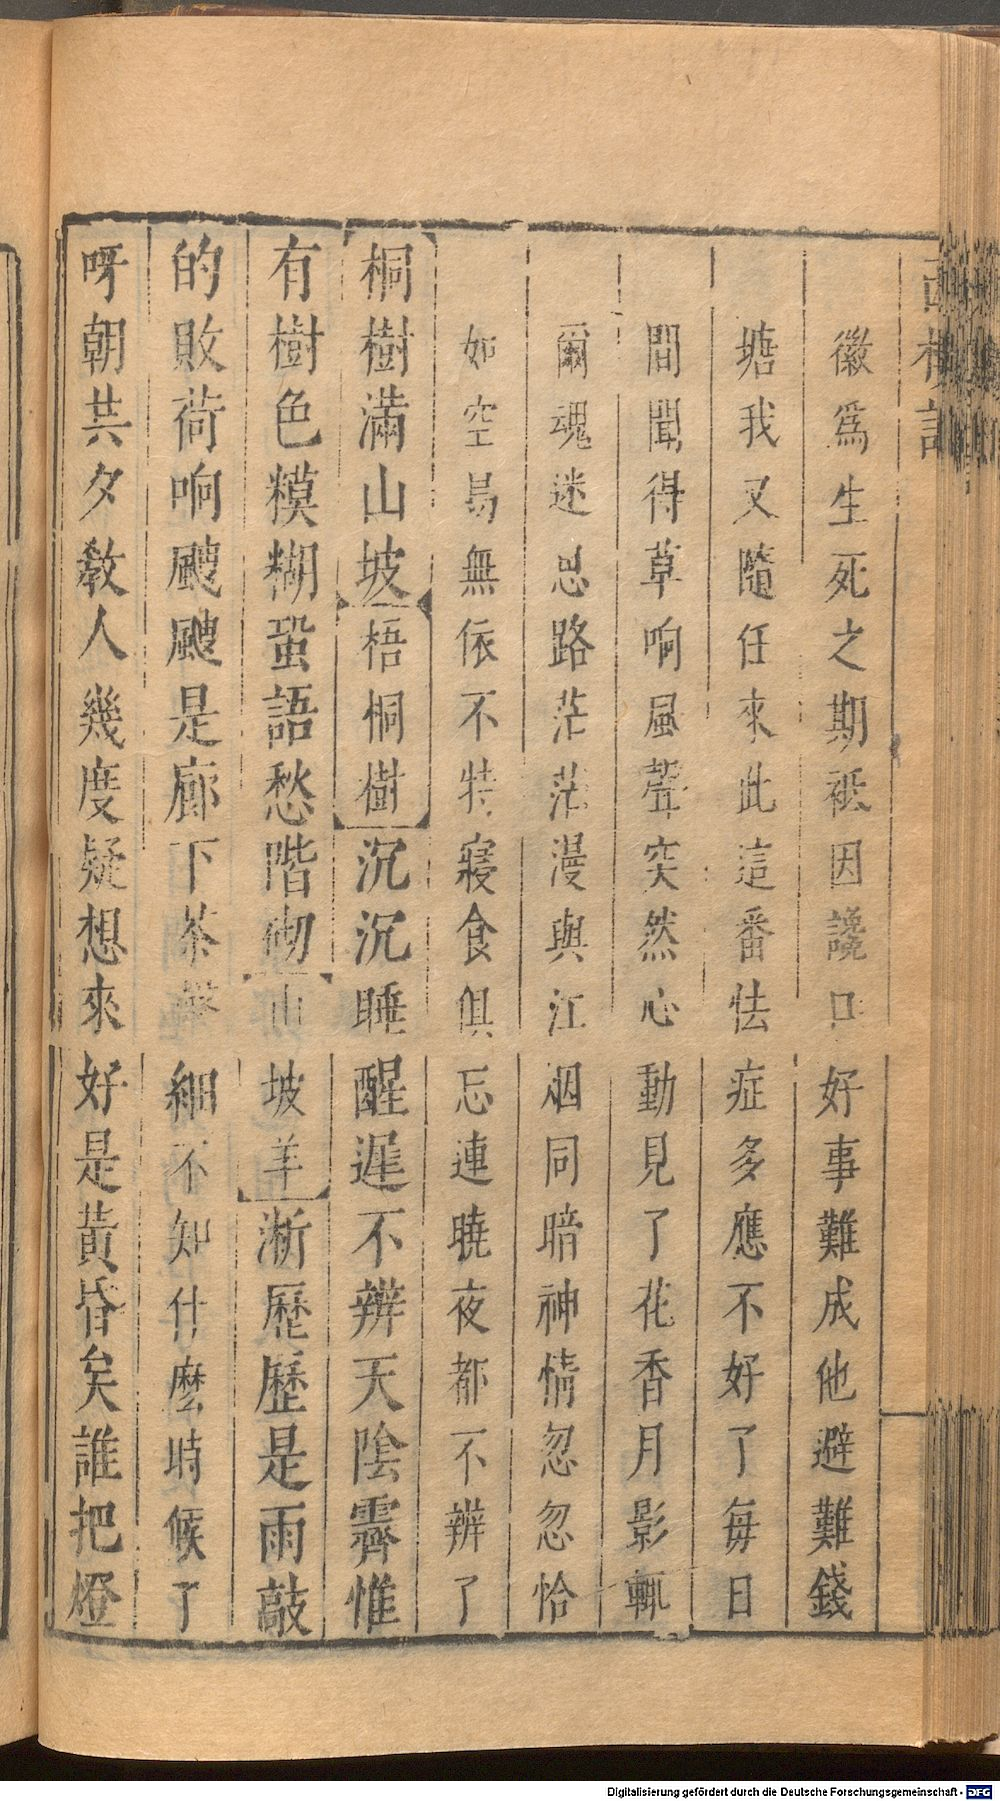 徽爲生死之期祗因讒口好事難成他避難錢
塘我又隨任來此這番怯症多應不好了每日
間聞得草响風聲突然心動見了花香月影輒
爾魂迷思路茫茫漫與江烟同暗神情忽忽恰
如空易無依不特寢食俱忘連曉夜都不辨了
桐樹滿山坡梧桐樹沉沉睡醒遲不辨天陰霽惟
有樹色糢糊蛩語愁階砌山坡羊淅歷歷是雨敲
的敗荷响颼颼是廊下茶聲細不知什麽時候了
呀朝共夕教人幾度疑想來好是黃昏矣誰把燈
Digitalisierung gefördert durch die Deutsche Forschungsgemeinschaft - DFG